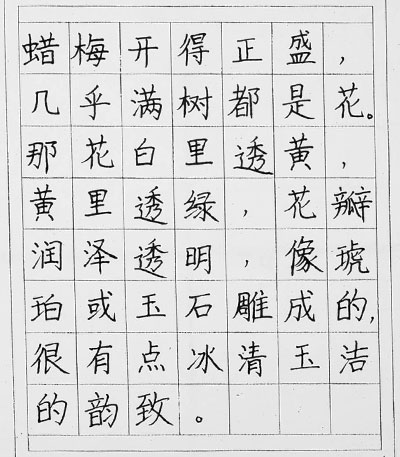 蜡梅开得正盛，
几乎满树都是花。
那花白里透黄，
黄里透绿，花瓣
润泽透明，像琥
珀或玉石雕成的，
很有点冰清玉洁
的韵致。